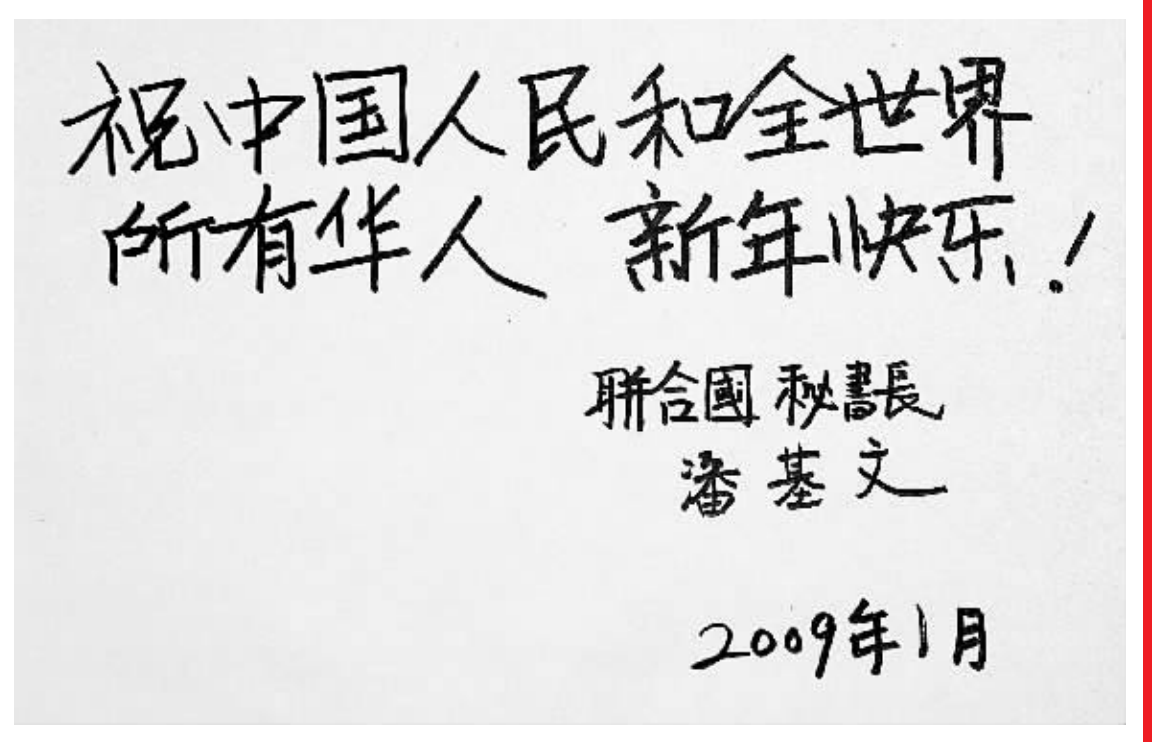 祝中国人民和全世界
所有华人 新年快乐！
聯合國 秘書長
潘基文
2009年1月